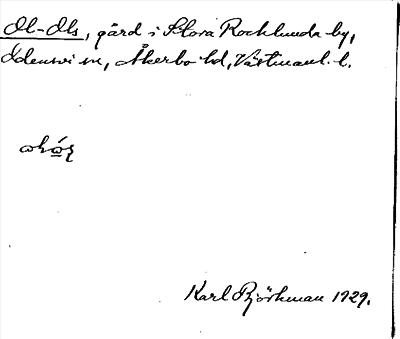 Ol-Ols, gård i Stora Rocklunda by,
Odensvi sn, Åkerbo hd, Västmanl. l.
Karl Björkman 1929.